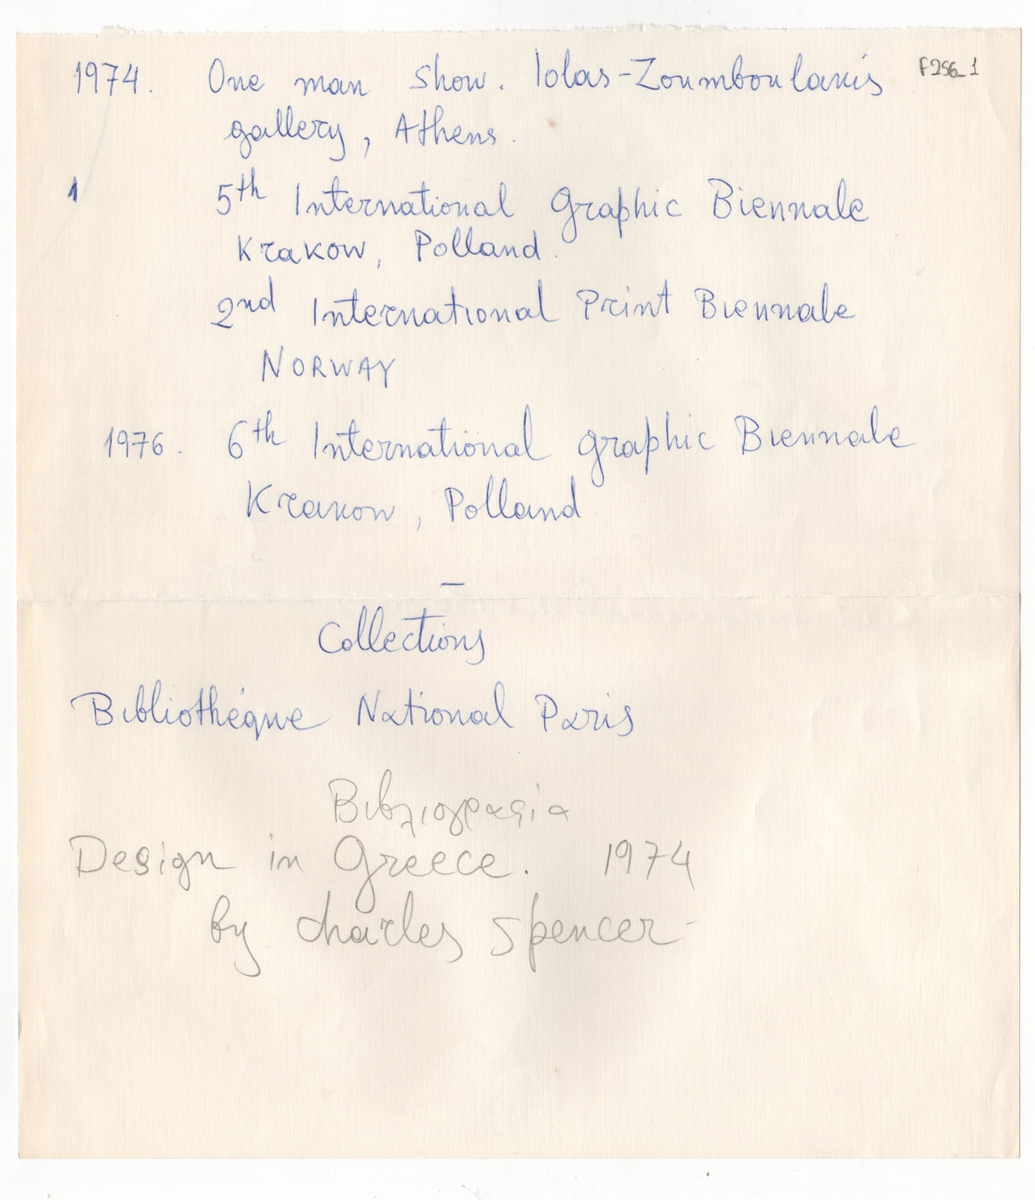 1974. One man show. Iolas-Zoumboulakis
F256_1
gallery, Athens.
1
5th International Graphic Biennale
Krakow, Polland.
2nd International Print Biennale
NORWAY
1976. 6th International graphic Biennale
Krakow, Polland
—
Collections
Bibliothéque National Paris
Βιβλιογραφία
Design in Greece. 1974
by charles spencer-